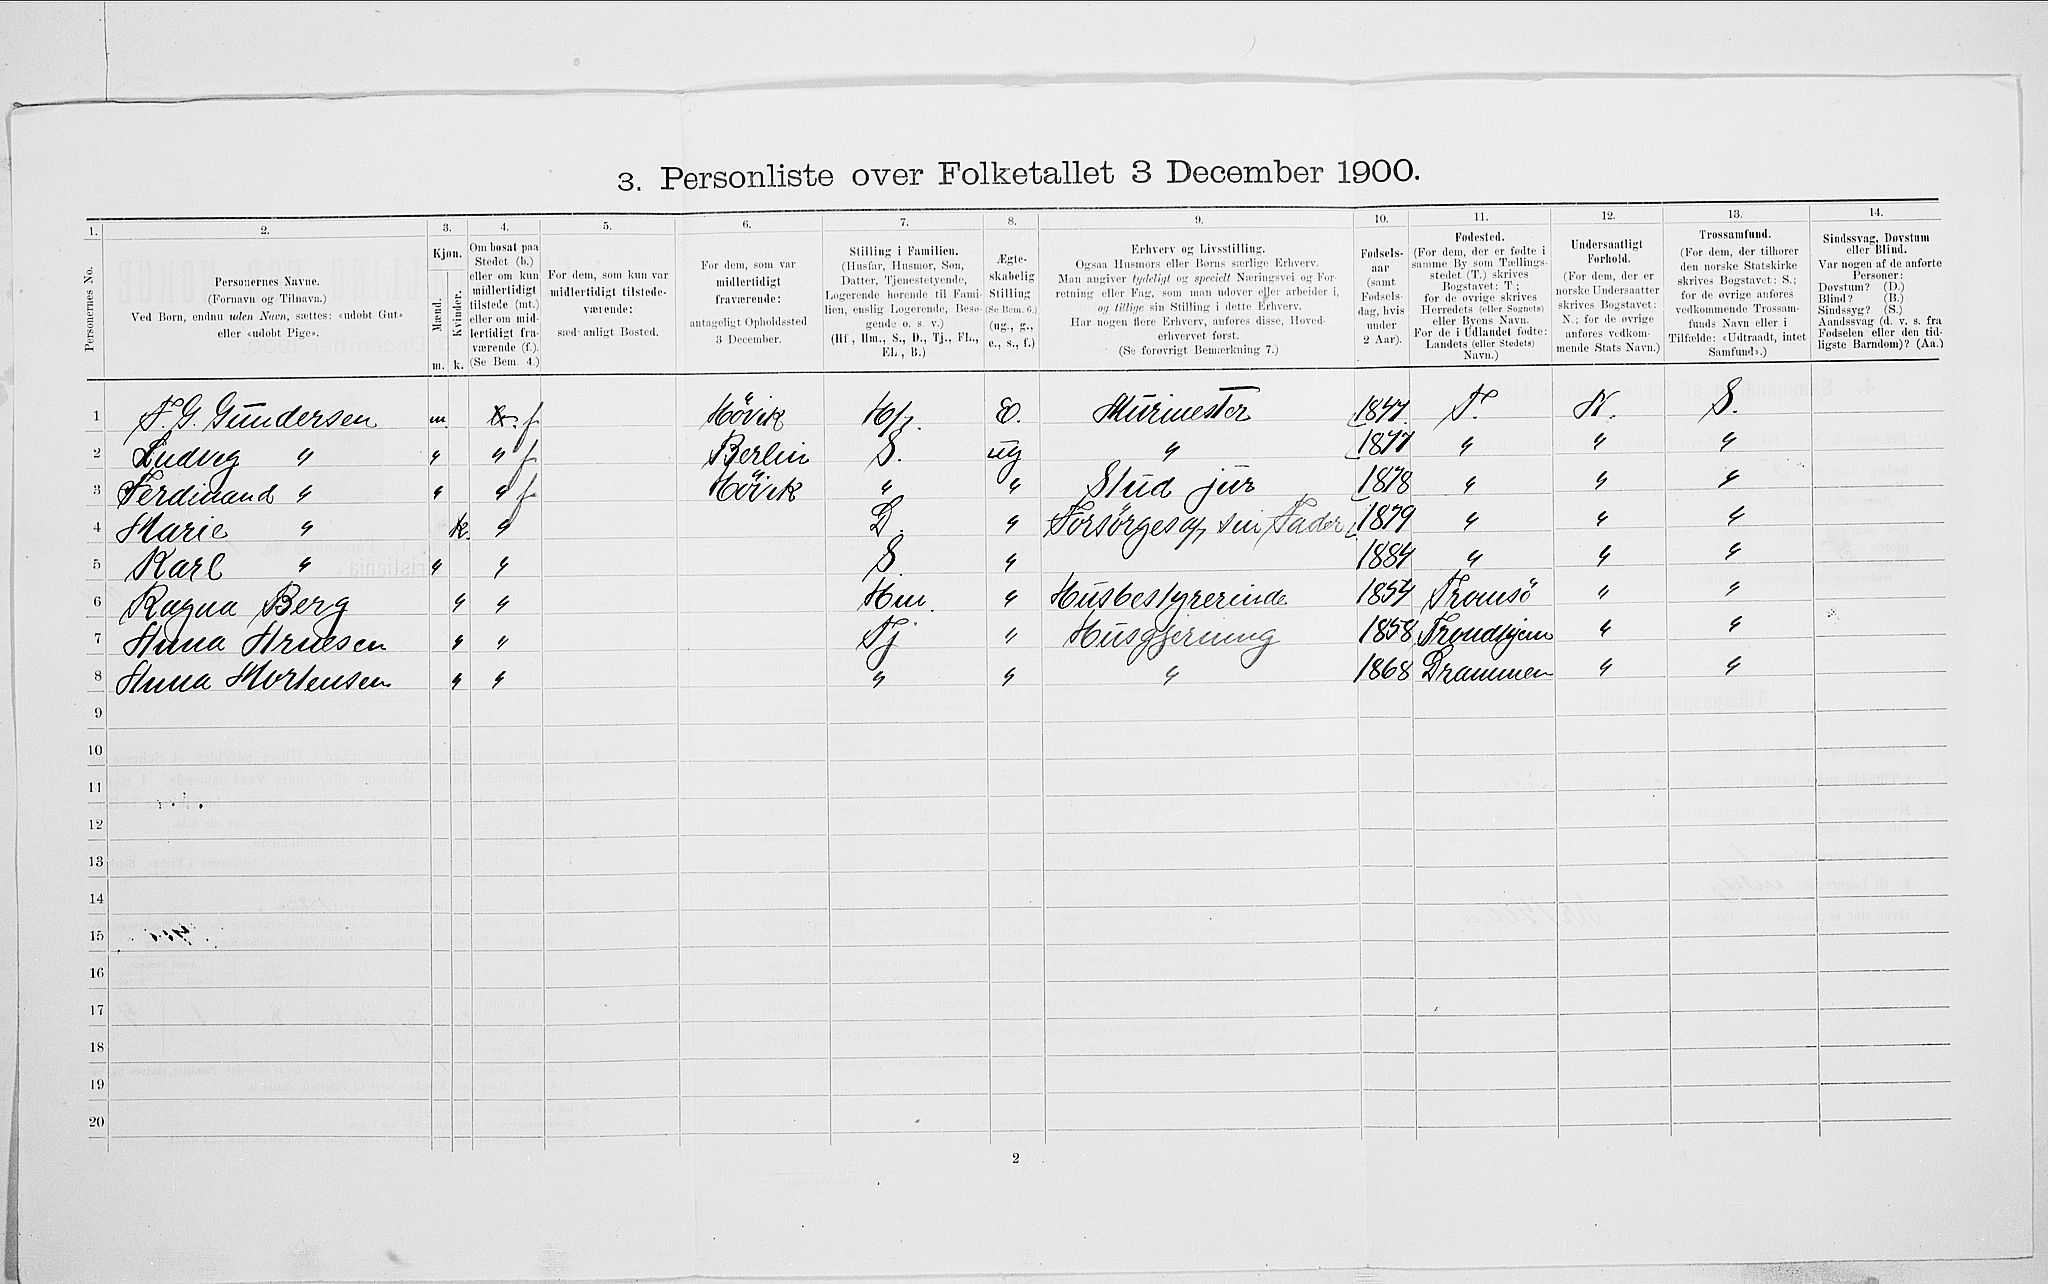 3. Personliste over Folketallet 3 December 1900.
1. 2. 3. 4. 5. 6. 7. 8. 9. 10. 11. 12. 13. 14.
Personernes No.
Personernes Navne.
(Fornavn og Tilnavn.)
Ved Børn, endnu uden Navn, sættes: «udøbt Gut»
eller «udøbt Pige».
Kjøn.
Mænd. Kvinder.
m. k.
Om bosat paa
Stedet (b.)
eller om kun
midlertidigt
tilstede (mt.)
eller om mid-
lertidigt fra-
værende (f.).
(Se Bem. 4.)
For dem, som kun var
midlertidigt tilstede-
værende:
sædvanligt Bosted.
For dem, som var
midlertidigt
fraværende:
antageligt Opholdssted
3 December.
Stilling i Familien.
(Husfar, Husmor, Søn,
Datter, Tjenestetyende,
Logerende hørende til Fami-
lien, enslig Logerende, Besø-
gende o. s. v.)
(Hf., Hm., S., D., Tj., FL.,
EL., B.)
Ægte-
skabelig
Stilling
(Se Bem. 6.)
(ug., g.,
e., s., f.)
Erhverv og Livsstilling.
Ogsaa Husmors eller Børns særlige Erhverv.
Man angiver tydeligt og specielt Næringsvei og For-
retning eller Fag, som man udøver eller arbeider i,
og tillige sin Stilling i dette Erhverv.
Har nogen flere Erhverv, anføres disse, Hoved-
erhvervet først.
(Se forøvrigt Bemærkning 7.)
Fødsels-
aar
(samt
Fødsels-
dag, hvis
under
2 Aar).
Fødested.
(For dem, der er fødte i
samme By som Tællings-
stedet (T.) skrives
Bogstavet: T;
for de øvrige skrives
Herredets (eller Sognets)
eller Byens Navn.
For de i Udlandet fødte:
Landets (eller Stedets)
Navn.)
Undersaatligt
Forhold.
(For dem, der er
norske Undersaatter
skrives Bogstavet:
N.; for de øvrige
anføres vedkom-
mende Stats Navn.)
Trossamfund.
(For dem, der tilhører
den norske Statskirke
skrives Bogstavet: S.;
for de øvrige anføres
vedkommende Trossam-
funds Navn eller i
Tilfælde: «Udtraadt, intet
Samfund».)
Sindssvag, Døvstum
eller Blind.
Var nogen af de anførte
Personer:
Døvstum? (D.)
Blind? (B.)
Sindssyg? (S.)
Aandssvag (d. v. s. fra
Fødselen eller den tid-
ligste Barndom)? (Aa.)
1 F. G. Gundersen m. b. f Høvik Hf. E. Murmester 1847. T. N. S.
2 Ludvig " " " f Berlin S. ug " 1877 " " "
3 Ferdinand " " " f Høvik " " Stud jur 1878 " " "
4 Marie " k. " D. " Forsørges af sin Fader 1879 " " "
5 Karl " " " S. " 1884 " " "
6 Ragna Berg " " Hm. " Husbestyrerinde 1854 Tromsø " "
7 Anna Arnesen " " Tj " Husgjerning 1858 Trondhjem " "
8 Anna Mortensen " " " " " 1868 Drammen " "
9
10
11
12
13
14
15
16
17
18
19
20
2